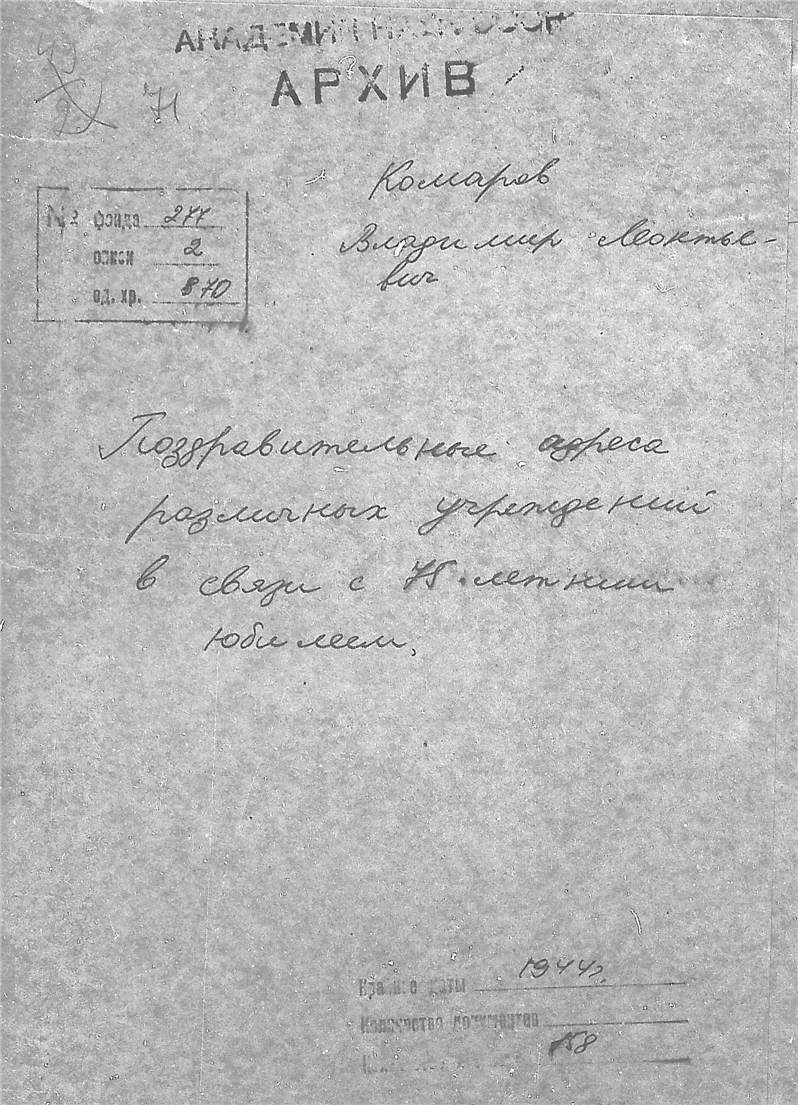 АКАДЕМИЯ НАУК СССР
АРХИВ
71
Комаров
Владимир Леонтье-
вич
№ фонда 277
описи 2
ед. хр. 870
Поздравительные адреса
различных учреждений
в связи с 75-летним
юбилеем.
Крайние даты 1944г.
Количество документов
158